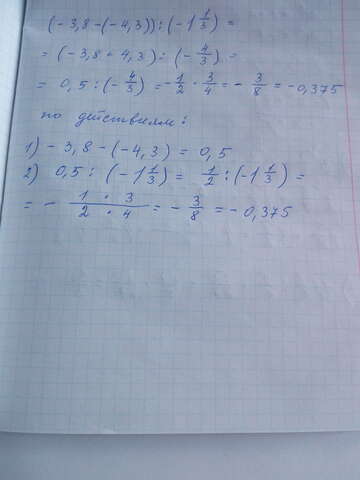 (-3,8-(-4,3)):(-1 1/3)=
=(-3,8+4,3):(-4/3)=
=0,5:(-4/3)=-1/2·3/4=-3/8=-0,375
по действиям:
1) -3,8-(-4,3)=0,5
2) 0,5:(-1 1/3)=1/2:(-1 1/3)=
=-1·3/2·4=-3/8=-0,375